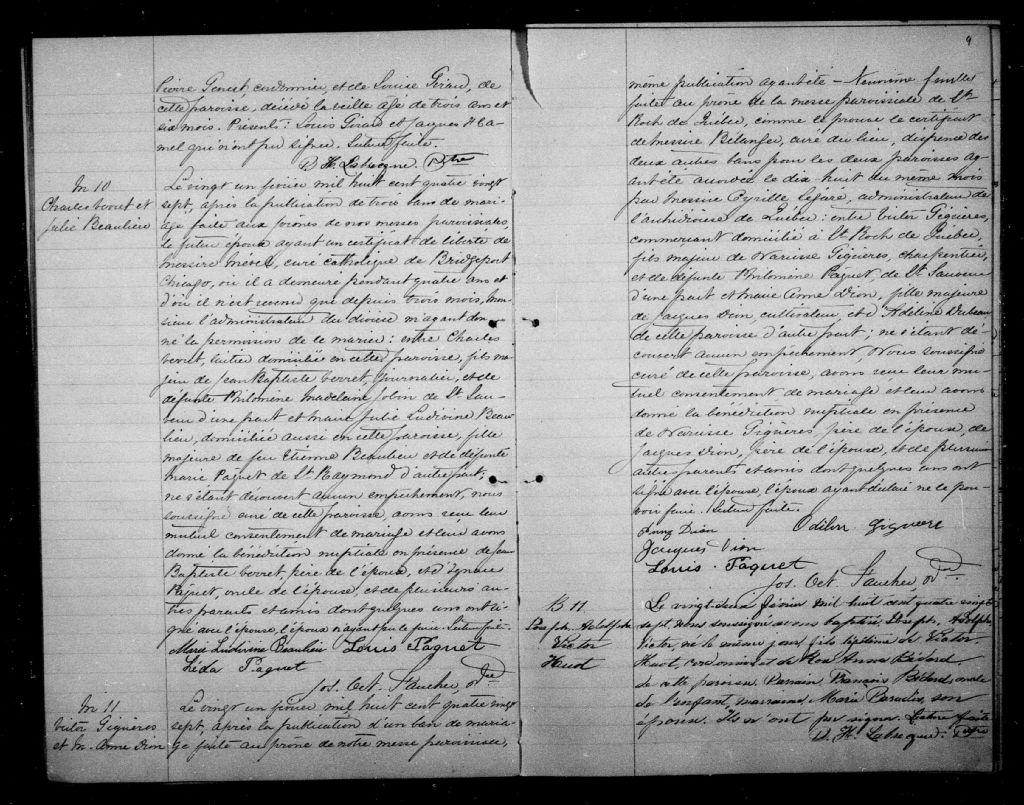 Pierre Genest cordonnier, et de Louise Girard, de
cette paroisse, décédé la veille age de trois ans et
six mois. Présents: Louis Girard et Jacques Ha-
mel qui n'ont pu signer. Lecture faite.
D. H. Labrecque. Ptre
M 10
Charles Verret et
Julie Beaulieu
Le vingt un février mil huit cent quatre vingt
sept, après la publication de trois bans de mari-
age faite aux prônes de nos messes paroissiales,
le futur époux ayant un certificat de liberté de
messire curé catholique de Bridgeport
Chicago, où il a demeuré pendant quatre ans et
d'où il n'est revenu que depuis trois mois, mon-
sieur l'administrateur du diocèse m'ayant don-
né la permission de le marier: entre Charles
Verret, laitier domicilié en cette paroisse, fils ma-
jeur de Jean Baptiste Verret, journalier, et de
défunte Philomène Madeleine Jobin de St Sau-
veur d'une part et Marie Julie Ludivine Beau-
lieu, domiciliée aussi en cette paroisse, fille
majeure de feu Etienne Beaulieu et de défunte
Marie Paquet de St Raymond d'autre part;
ne s'étant découvert aucun empêchement, nous
soussigné curé de cette paroisse, avons reçu leur
mutuel consentement de mariage et leur avons
donné la bénédiction nuptiale en présence de Jean
Baptiste Verret, père de l'époux, et d'Ignace
Paquet, oncle de l'épouse, et de plusieurs au-
tres parents et amis dont quelques uns ont si-
gné avec l'épouse, l'époux n'ayant pu le faire. Lecture faite.
Marie Ludivine Beaulieu Louis Paquet
Léda Paquet
Jos. Oct. Faucher, Ptre
M 11
Victor Giguères
et M. Anne Dion
Le vingt un février mil huit cent quatre vingt
sept, après la publication d'un ban de maria-
ge faite au prône de notre messe paroissiale,
9
même publication ayant été - Neuvième feuillet
faite au prône de la messe paroissiale de St
Roch de Québec, comme le prouve le certificat
de messire Bélanger, curé du lieu, dispense des
deux autres bans pour les deux paroisses ay-
ant été accordée le dix huit du même mois
par messire Cyrille Légaré, administrateur de
l'archidiocèse de Québec: entre Victor Giguères,
commerçant domicilié à St Roch de Québec,
fils majeur de Narcisse Giguères, charpentier,
et de défunte Philomène Paquet, de St Sauveur
d'une part et Marie Anne Dion, fille majeure
de Jacques Dion, cultivateur, et d'Adéline Dubeau
de cette paroisse d'autre part; ne s'étant dé-
couvert aucun empêchement, Nous soussigné
curé de cette paroisse, avons reçu leur mu-
tuel consentement de mariage et leur avons
donné la bénédiction nuptiale en présence
de Narcisse Giguères père de l'époux, de
Jacques Dion, père de l'épouse, et de plusieurs
autres parents et amis dont quelques uns ont
signé avec l'épouse, l'époux ayant déclaré ne le pou-
voir faire. Lecture faite.
Dion Odilon Giguere
Jacques Dion
Louis Paquet
Jos. Oct. Faucher, Ptre
B 11
Joseph Adolphe
Victor
Huot
Le vingt deux février mil huit cent quatre vingt
sept, Nous soussigné avons baptisé Joseph, Adolphe
Victor, né le même jour, fils légitime de Victor
Huot, cordonnier et de Anna Bédard
de cette paroisse. Parrain François Bédard, oncle
de l'enfant, marraine, Marie Paradis, son
épouse. Ils n'ont pu signer. Lecture faite
D. H. Labrecque. Ptre